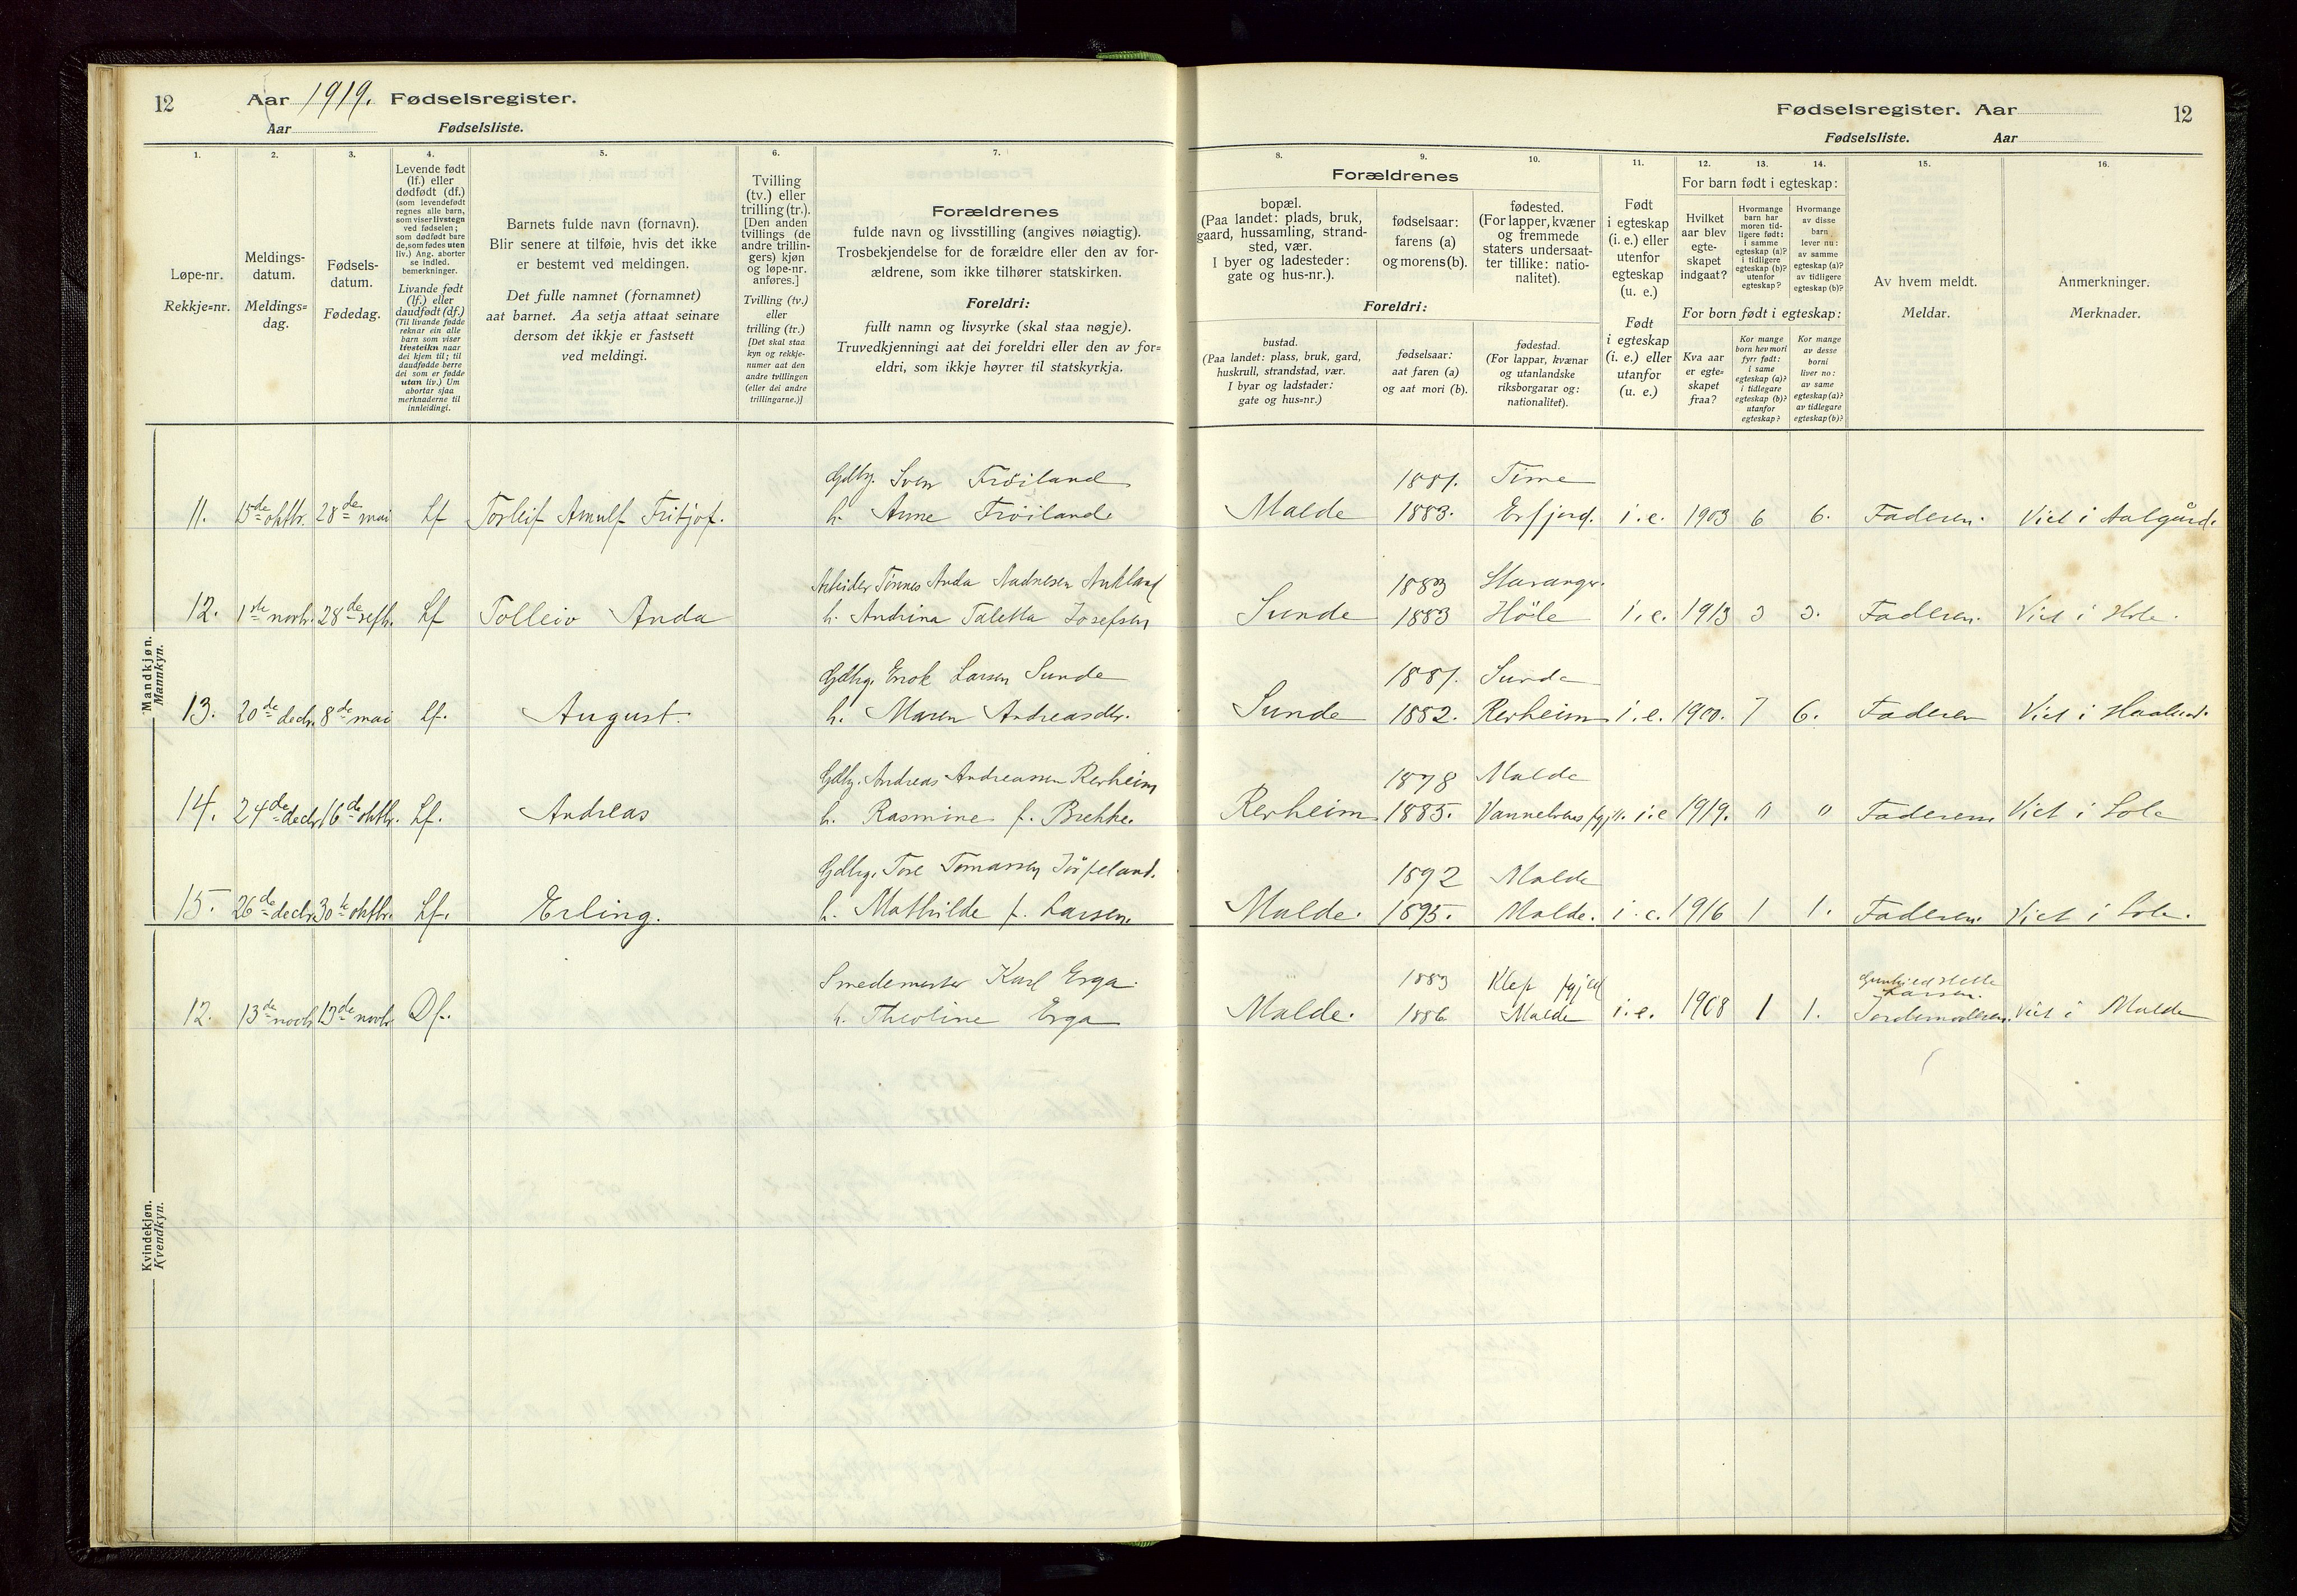 12 Aar 1919. Fødselsregister.
Aar Fødselsliste.
Fødselsregister. Aar 12
Fødselsliste. Aar
1.
Løpe-nr.
Rekkje=nr.
2.
Meldings-
datum.
Meldings=
dag.
3.
Fødsels-
datum.
Fødedag.
4.
Levende født
(lf.) eller
dødfødt (df.)
(som levendefødt
regnes alle barn,
som viser livstegn
ved fødselen;
som dødfødt bare
de, som fødes uten
liv.) Ang. aborter
se indled.
bemerkninger.
Livande født
(lf.) eller
daudfødt (df.)
(Til livande fødde
reknar ein alle
barn som viser
livsteikn naar
dei kjem til; til
daudfødde berre
dei som er fødde
utan liv.) Um
abortar sjaa
merknaderne til
innleidingi.
5.
Barnets fulde navn (fornavn).
Blir senere at tilføie, hvis det ikke
er bestemt ved meldingen.
Det fulle namnet (fornamnet)
aat barnet. Aa setja attaat seinare
dersom det ikkje er fastsett
ved meldingi.
6.
Tvilling
(tv.) eller
trilling (tr.).
[Den anden
tvillings (de
andre trillin-
gers) kjøn
og løpe-nr.
anføres.]
Tvilling (tv.)
eller
trilling (tr.)
[Det skal staa
kyn og rekkje-
numer aat den
andre tvillingen
(eller dei andre
trillingarne.)]
7.
Forældrenes
fulde navn og livsstilling (angives nøiagtig).
Trosbekjendelse for de forældre eller den av for-
ældrene, som ikke tilhører statskirken.
Foreldri:
fullt namn og livsyrke (skal staa nøgje).
Truvedkjenningi aat dei foreldri eller den av for=
eldri, som ikkje høyrer til statskyrkja.
Forældrenes
8.
bopæl.
(Paa landet: plads, bruk,
gaard, hussamling, strand-
sted, vær.
I byer og ladesteder:
gate og hus-nr.).
9.
fødselsaar:
farens (a)
og morens (b).
10.
fødested.
(For lapper, kvæner
og fremmede
staters undersaat-
ter tillike: natio-
nalitet).
Foreldri:
bustad.
(Paa landet: plass, bruk, gard,
huskrull, strandstad, vær.
I byar og ladstader:
gate og hus=nr.)
fødselsaar:
aat faren (a)
og aat mori (b).
fødestad.
(For lappar, kvænar
og utanlandske
riksborgarar og:
nationalitet).
11.
Født
i egteskap
(i. e.) eller
utenfor
egteskap
(u. e.)
Født
i egteskap
(i. e.) eller
utanfor
(u. e.)
For barn født i egteskap:
12.
Hvilket
aar blev
egte-
skapet
indgaat?
13.
Hvormange
barn har
moren tid-
ligere født:
i samme
egteskap (a)?
i tidligere
egteskap (b)?
utenfor
egteskap?
14.
Hvormange
av disse
barn
lever nu:
av samme
egteskap (a)?
av tidligere
egteskap (b)?
For born født i egteskap:
Kva aar
er egte=
skapet
fraa?
Kor mange
born hev mori
fyrr født:
i same
egteskap (a)?
i tidlegare
egteskap (b)?
utanfor
egteskap?
Kor mange
av desse
borni
liver no:
av same
egteskap (a)?
av tidlegare
egteskap (b)?
15.
Av hvem meldt.
Meldar.
16.
Anmerkninger.
Merknader.
Mandkjøn.
Mannkyn.
Gdbr. Sven Frøiland 1881. Time
11. 15de oktbr. 28de mai Lf Torleif Arnulf Fritjof. h. Anne Frøiland Malde 1883. Erfjord. i.e. 1903 6 6. Faderen. Vict i Aalgård.
Arbeider Tønnes Anda Aadnesen Aukland 1883 Stavanger.
12. 1ste novbr. 28de septbr. Lf Tolleiv Anda h. Andrina Taletta Josefsen Sunde 1883 Høle i.e. 1913 3 3. Faderen. Vict i Hole.
Gdbr. Enok Larsen Sunde 1881. Sunde
13. 20de decbr. 8de mai Lf. August. h. Maren Andreasdtr. Sunde 1882. Revheim i.e. 1900. 7 6. Faderen Vict i Haaland.
Gdbr. Andreas Andreassen Revheim 1878 Malde
14. 24de decbr. 16de oktbr. Lf. Andreas h. Rasmine f. Brekke. Revheim 1885. i.e 1919. " " Faderen Vict i Sole
Gdbr. Tore Tomassen Jørpeland. 1892 Malde
15. 26de decbr. 30te oktbr. Lf. Erling. h. Mathilde f. Larsen. Malde. 1895. Malde. i.e. 1916 1 1. Faderen. Vict i Sole.
Kvindekjøn.
Kvendkyn.
Smedemester Karl Erga. 1883 Klep
Larsen.
12. 13de novbr. 13de novbr. Df. h. Theoline Erga Malde. 1886 Malde i.e. 1908 1 1. Jordemoderen. Vict i Malde